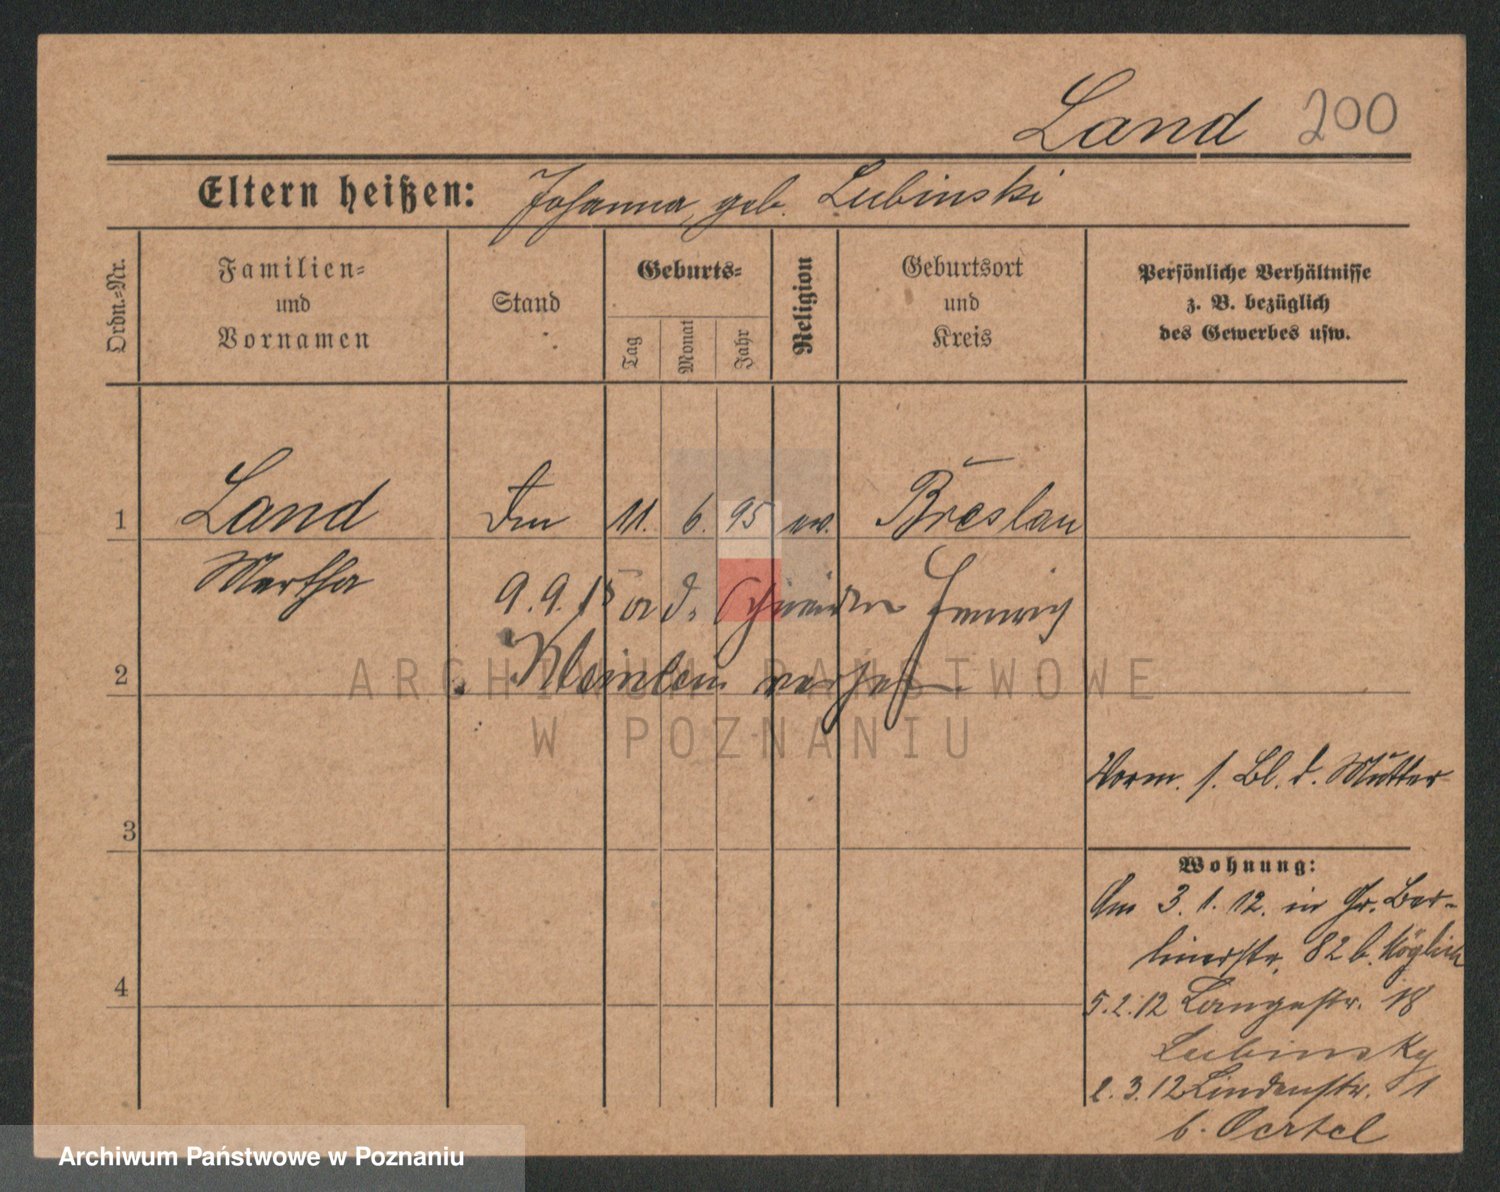 Land 200
Eltern heißen: Johanna, geb. Lubinski
Ordn.-Nr.
Familien-
und
Vornamen
Stand
Geburts-
Tag
Monat
Jahr
Religion
Geburtsort
und
Kreis
Persönliche Verhältnisse
z. B. bezüglich
des Gewerbes usw.
1 Land 11. 6. 95 ev. Breslau
Martha
9.9.15 a. d.
2 verh.
ARCHIWUM PAŃSTWOWE
W POZNANIU
Vorm. s. Bl. d. Mutter
3
Wohnung:
Am 3. 1. 12. in Gr. Ber-
linerstr. 82 b. Möglich
4
5.2.12 Langestr. 18
Lubinsky
2.3.12 Lindenstr. 1
b. Oertel
Archiwum Państwowe w Poznaniu